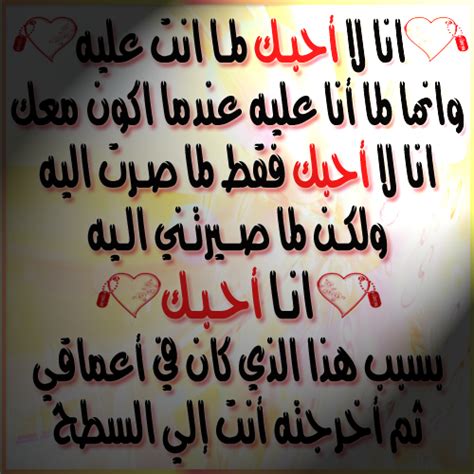 انا لا أحبك لما انت عليه
وانما لما أنا عليه عندما اكون معك
انا لا أحبك فقط لما صرت اليه
ولكن لما صيرتني اليه
انا أحبك
بسبب هذا الذي كان في أعماقي
ثم أخرجته أنت إلي السطح